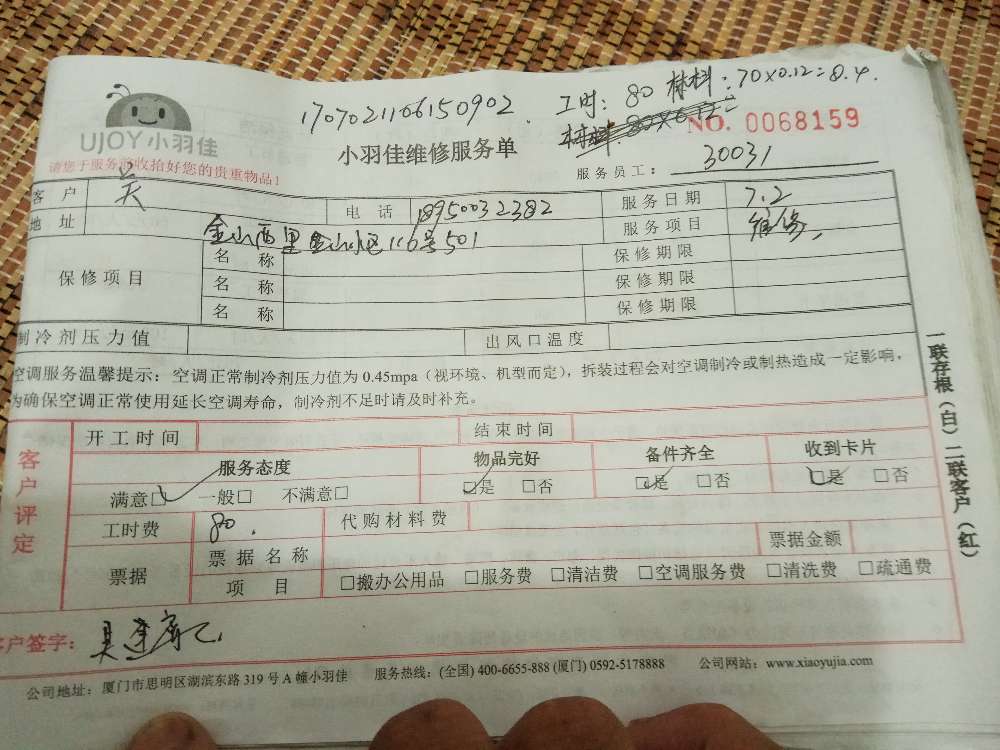 170702110615090​2 工时：80 材料：70×0.12=8.4.
UJOY小羽佳
小羽佳维修服务单
NO. 0068159
请您于服务前收拾好您的贵重物品！
服务员工：30031
客户 吴 电话 18950032382 服务日期 7.2
地址 金山西里金山小区116号501 服务项目 维修
保修项目 名称 保修期限
名称 保修期限
名称 保修期限
制冷剂压力值 出风口温度
空调服务温馨提示：空调正常制冷剂压力值为0.45mpa（视环境、机型而定），拆装过程会对空调制冷或制热造成一定影响，
为确保空调正常使用延长空调寿命，制冷剂不足时请及时补充。
一联存根（白）二联客户（红）
客户评定
开工时间 结束时间
服务态度 物品完好 备件齐全 收到卡片
满意□ 一般□ 不满意□ □是 □否 □是 □否 □是 □否
工时费 80. 代购材料费
票据 票据名称 票据金额
项目 □搬办公用品 □服务费 □清洁费 □空调服务费 □清洗费 □疏通费
客户签字：
公司地址：厦门市思明区湖滨东路319号A幢小羽佳 服务热线：(全国) 400-6655-888 (厦门) 0592-5178888 公司网站：www.xiaoyujia.com